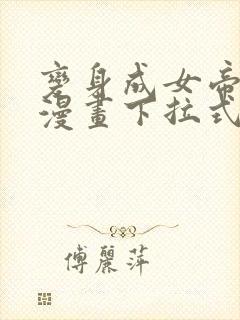 變身成女帝
漫畫下拉式
傅麗萍